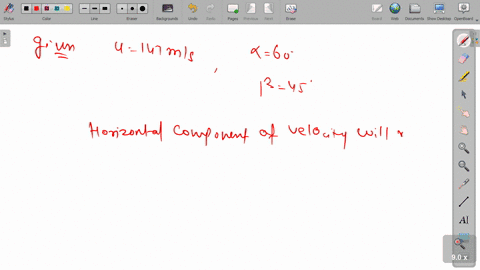 Stylus
Color
Line
Backgrounds
Undo
Redo
Pages
Previous
Next
Erase
Board
Web
Documents
Show Desktop
OpenBoard
given u=147 m/s , α=60°
β=45°
Horizontal component of velocity will
9.0 x